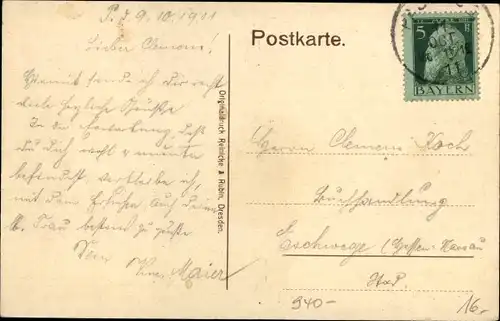 P. d. 9.10.1911
Lieber Clemens!
Hiermit sende ich Dir recht
viele herzliche Grüsse
In der Erwartung, daß
du Dich wohl & munter
befindest, verbleibe ich,
mit dem Ersuchen auch Deine
Frau bestens zu grüßen
Dein
Maier
Originaldruck Reinicke & Rubin, Dresden.
Postkarte.
5
OKT
11
BAYERN
Herrn Clemens Koch
Buchhandlung
Eschwege (Hessen-Nassau
940-
16.-